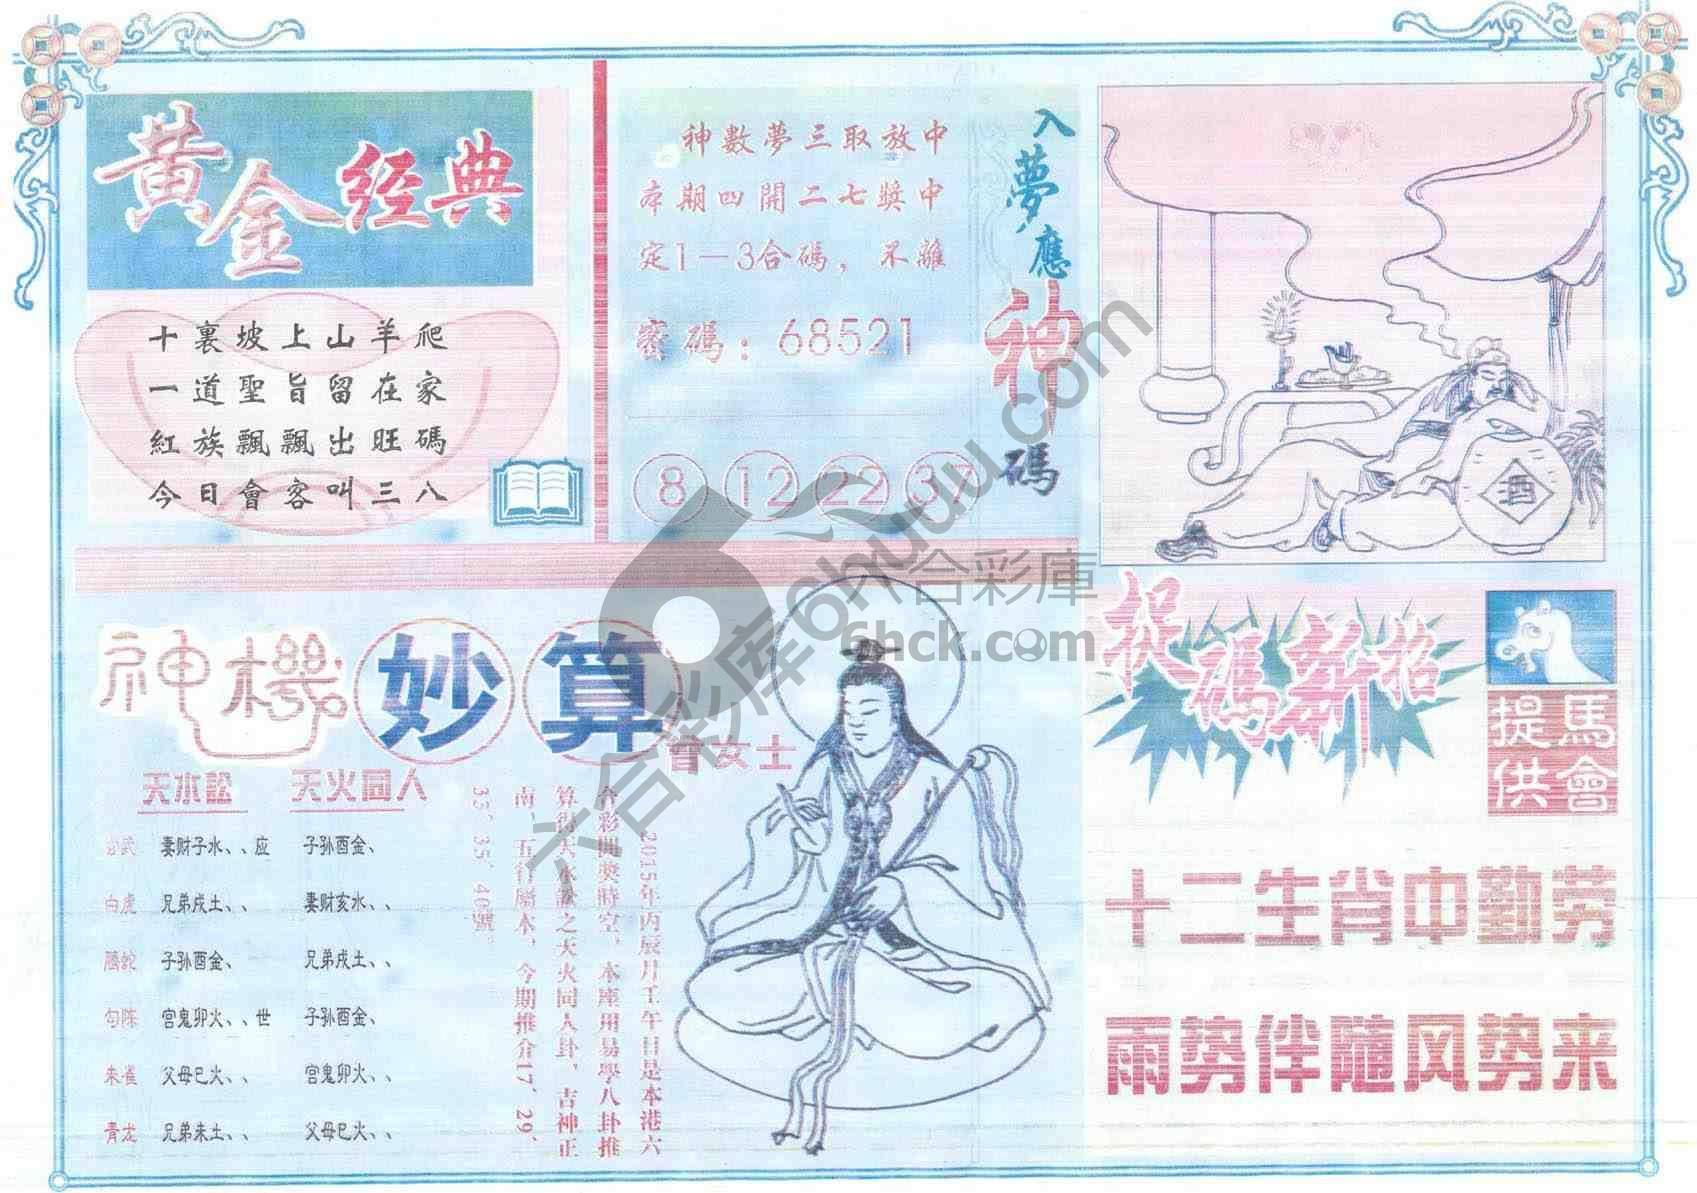 黃金经典
十裏坡上山羊爬
一道聖旨留在家
紅族飄飄出旺碼
今日會客叫三八
神數夢三取放中
本期四開二七獎中
定1一3合碼，不離
密碼：68521
8 12 22 37
入夢應神碼
酒
神機妙算
曾女士
天水訟 天火同人
玄武 妻财子水、、应 子孙酉金、
白虎 兄弟戌土、、 妻财亥水、、
腾蛇 子孙酉金、 兄弟戌土、、
勾陈 宫鬼卯火、、世 子孙酉金、
朱雀 父母巳火、、 宫鬼卯火、、
青龙 兄弟未土、、 父母巳火、、
2015年内辰月壬午日是本港六
合彩開獎時空，本座用易學八卦推
算得天水訟之天火同人卦，吉神正
南，五行屬木，今期推介17、29、
33、35、40號。
捉碼新招
馬會提供
十二生肖中勤劳
雨势伴随风势来
六合彩库6huuu.com
六合彩庫
6hck.com